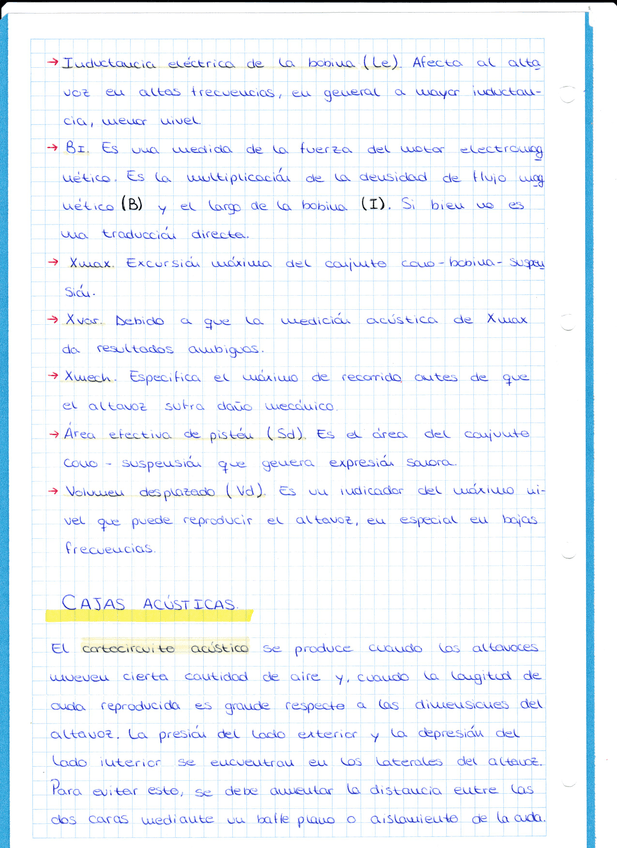 → Inductancia eléctrica de la bobina (Le). Afecta al alta
voz en altas frecuencias, en general a mayor inductan-
cia, menor nivel
→ BI. Es una medida de la fuerza del motor electromag
nético. Es la multiplicación de la densidad de flujo mag
nético (B) y el largo de la bobina (I). Si bien no es
una traducción directa.
→ Xmax. Excursión máxima del conjunto cono-bobina-suspen
sión.
→ Xvar. Debido a que la medición acústica de Xmax
da resultados ambiguos.
→ Xmech. Especifica el máximo de recorrido antes de que
el altavoz sufra daño mecánico.
→ Área efectiva de pistón (Sd). Es el área del conjunto
cono - suspensión que genera expresión sonora.
→ Volumen desplazado (Vd). Es un indicador del máximo ni-
vel que puede reproducir el altavoz, en especial en bajas
frecuencias.
CAJAS ACÚSTICAS.
El cortocircuito acústico se produce cuando los altavoces
mueven cierta cantidad de aire y, cuando la longitud de
onda reproducida es grande respecto a las dimensiones del
altavoz. La presión del lado exterior y la depresión del
lado interior se encuentran en los laterales del altavoz.
Para evitar esto, se debe aumentar la distancia entre las
dos caras mediante un bafle plano o aislamiento de la onda.